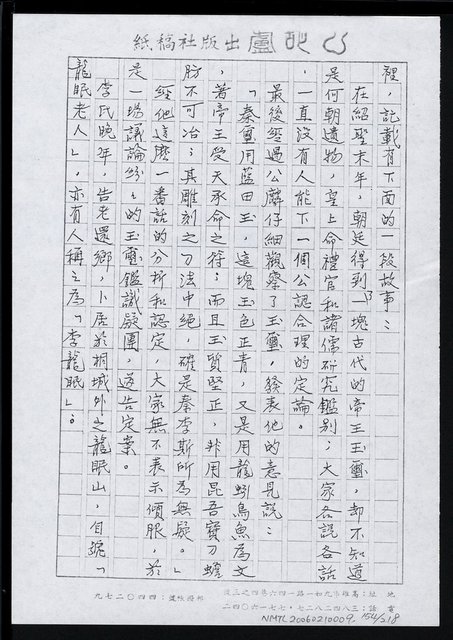 紙稿社版出廬心山
裡，記載有下面的一段故事：
在紹聖末年，朝廷得到了一塊古代的帝王玉璽，却不知道
是何朝遺物，皇上命禮官和諸儒研究鑑别；大家各說各話
，一直沒有人能下一個公認合理的定論。
最後經過公麟仔細觀察了玉璽，發表他的意見說：
「秦璽用藍田玉，這塊玉色正青，又是用龍蚓鳥魚為文
，著帝王受天承命之符；而且玉質堅正，非用昆吾寶刀蟾
肪不可治；其雕刻之刀法中絕，確是秦李斯所為無疑。」
經他這麼一番話的分析和認定，大家無不表示傾服，於
是一場議論紛々的玉璽鑑識疑團，遂告定案。
李氏晚年，告老還鄉，卜居於桐城外之龍眠山，自號「
龍眠老人」，亦有人稱之為「李龍眠」。
地址：高雄市九如一路一四六巷四之三號
電話：三八四二八二七·七七一六〇四二
郵撥帳號：四四〇二七九
NMTL20060210009. 154/518